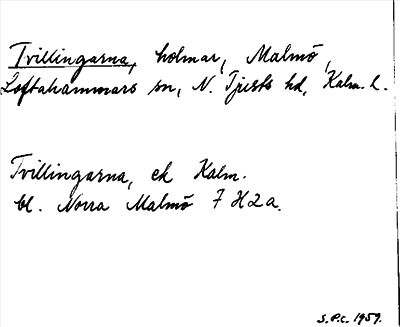 Tvillingarna, holmar, Malmö,
Loftahammars sn, N. Tjusts hd, Kalm. l.
Tvillingarna, ek Kalm.
bl. Norra Malmö 7 H2a.
S.P.C. 1959.